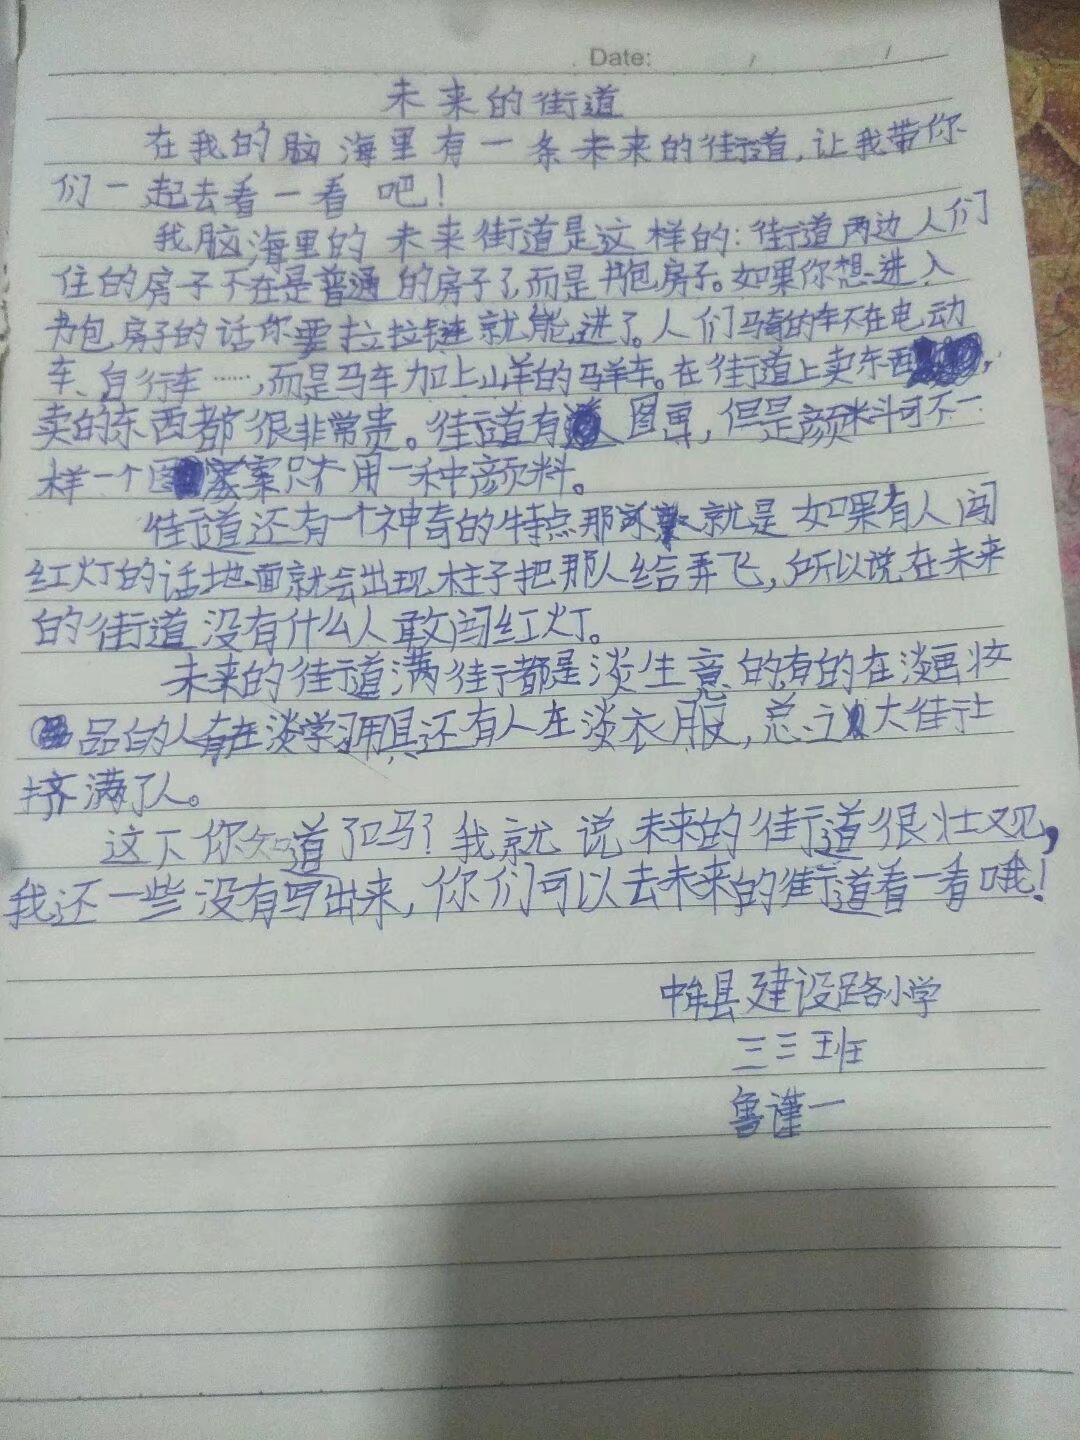 Date: / /
未来的街道
在我的脑海里有一条未来的街道,让我带你
们一起去看一看吧!
我脑海里的未来街道是这样的:街道两边人们
住的房子不在是普通的房子了,而是书包房子。如果你想进入
书包房子的话你要拉拉链就能进了。人们骑的车不在电动
车、自行车……,而是马车加上山羊的马羊车。在街道上卖东西,
卖的东西都很非常贵。街道有图画,但是颜料可不一
样一个图案只才用一种颜料。
街道还有一个神奇的特点那就是如果有人闯
红灯的话地面就会出现柱子把那人给弄飞,所以说在未来
的街道没有什么人敢闯红灯。
未来的街道满街都是淡生意的有的在淡画妆
品的人有在淡学习用具还有人在淡衣服,总之大街上
挤满了人。
这下你知道了吗?我就说未来的街道很壮观,
我还一些没有写出来,你们可以去未来的街道看一看哦!
中牟县建设路小学
三三班
鲁谨一